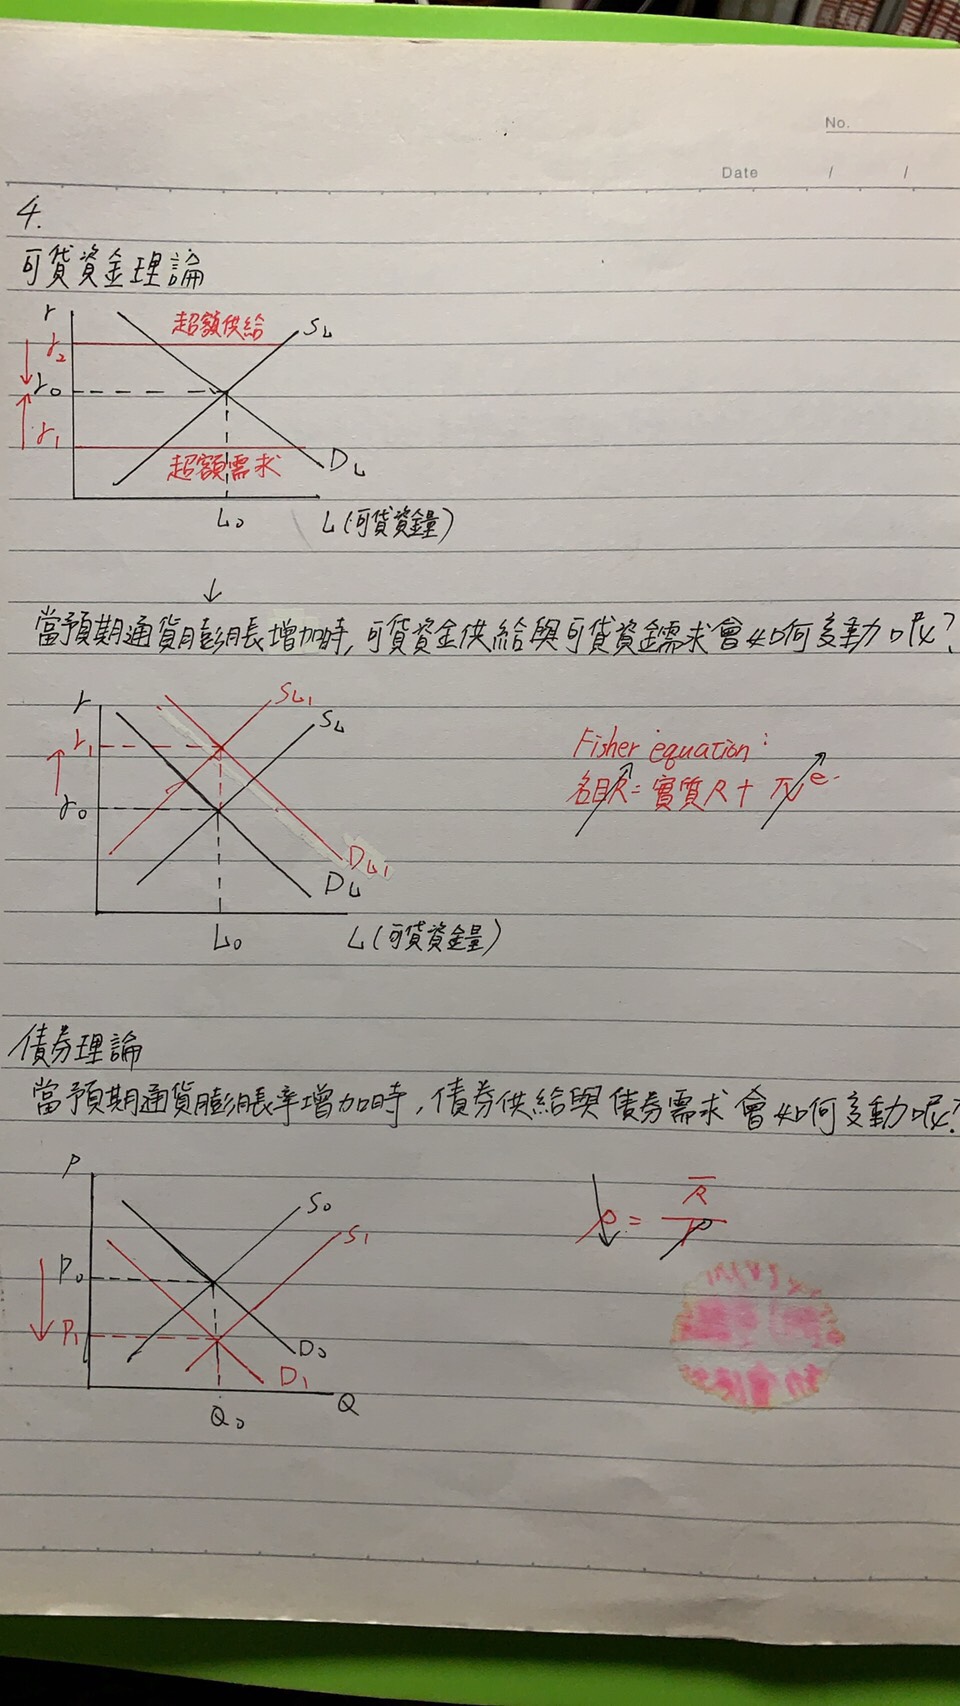 No.
Date / /
4.
可貸資金理論
r
超額供給
SL
r2
r0
r1
超額需求
DL
L0
L(可貸資金量)
↓
當預期通貨膨脹增加時,可貸資金供給與可貸資金需求會如何変動呢?
r
SL1
SL
r1
r0
DL1
DL
L0
L(可貸資金量)
Fisher equation:
名目R=實質R+πe.
債券理論
當預期通貨膨脹率增加時,債券供給與債券需求會如何変動呢?
P
S0
S1
P0
P1
D0
D1
Q0
Q
R